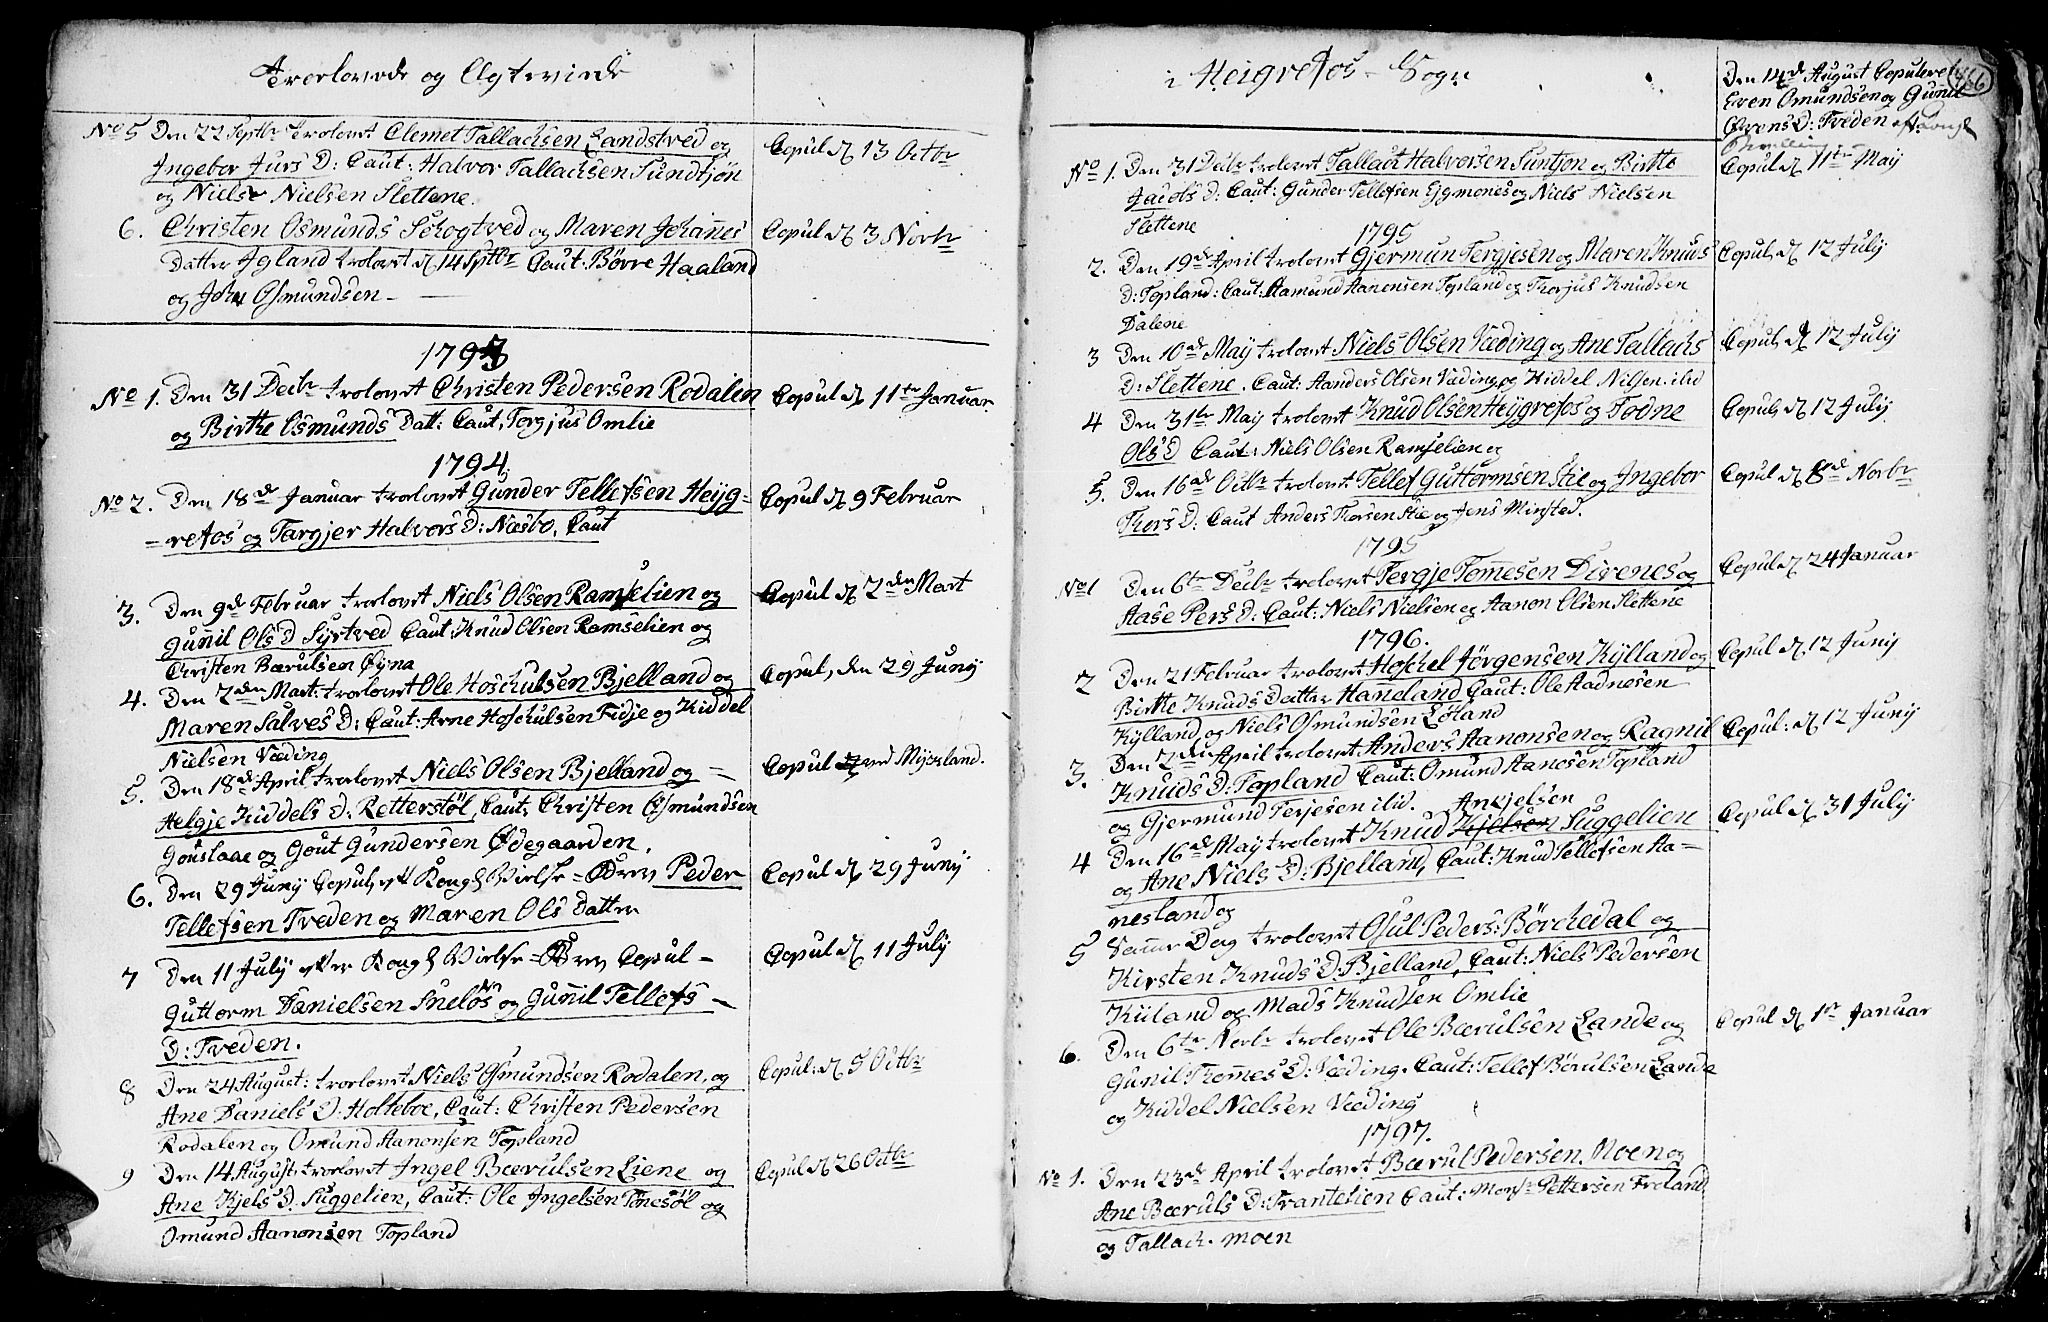 Troelovede og Egtevixede
No 5 Den 22 Septbr troelovet Clemet Tallachsen Landstved og
Ingebor Jurs D: Caut: Halvor Tallachsen Sundtjøn
og Niels Nielsen Slettene.
Copul d 13 Octbr
6. Christen Osmunds Schogtved og Maren Johannes
Datter Igland trolovet d 14 Sptbr Caut. Børre Haaland
og John Osmundsen
Copul d 3 Novbr
1793
No 1. Den 31 Decbr trolovet Christen Pedersen Rodalen
og Birthe Osmunds Datt: Caut, Torgjus Omlie
Copul d 11te Januar.
1794.
No 2. Den 18de Januar trolovet Gunder Tellefsen Heÿg-
-refos og Targjer Halvors D: Næsbo, Caut
Copul d 9 Februar
3. Den 9de Februar trolovet Niels Olsen Ramselien og
Gunnil Ols D Syrtved Caut: Knud Olsen Ramselien og
Christen Bærulsen Øÿna
Copul d 2den Mart
4. Den 2den Mart: trolovet Ole Hoschulsen Bjelland og
Maren Salves D: Caut: Arne Hoschulsen Fidje og Kiddel
Nielsen Væding
Copul, den 29 Junÿ
5. Den 18de April trolovet Niels Olsen Bjelland og =
Helgje Kiddels D: Retterstøl, Caut, Christen Osmundsen
Gouslaae og Gout Gundersen Ødegaarden.
Copul ved Mÿcland.
6. Den 29 Junÿ Copul, eft Kongl Vielse = Brev Peder
Tellefsen Tveden og Maren Ols Datter
Copul d 29 Junÿ
7 Den 11 Julÿ efter Kongl Vielse = Brev Copul -
Guttorm Danielsen Sneløs og Gunnil Tellefs -
D: Tveden.
Copul d 11 Julÿ
8 Den 24 August: trolovet Niels Osmundsen Rodalen, og
Ane Daniels D: Holteboe, Caut: Christen Pedersen
Rodalen og Omund Aanonsen Topland
Copul: d 5 Octbr
9 Den 14 August, trolovet Ingel Bærulsen Liene og
Ane Kjels D. Suggelien, Caut: Ole Ingelsen Tonesøl og
Omund Aanonsen Topland
Copul d 26 Octbr
i Heigrefos - Sogn
466
Den 14de August Copuleret
Even Omundsen og Gunnil
Øvens D: Tveden efter Kongl
No 1. Den 31 Decbr trolovet Tallach Halvorsen Suntjøn og Birthe
Jacobs D: Caut: Gunder Tellefsen Eÿgmones og Niels Nielsen
Slettene
Copul d 11te May
1795
2. Den 19de April trolovet Gjermun Tergjesen og Maren Knuds
D: Topland: Caut: Aamund Aanonsen Topland og Thorjus Knudsen
Dalene
Copul, d 12 Julÿ
3 Den 10de Maÿ trolovet Niels Olsen Væding og Ane Tallachs
D: Slettene. Caut: Aanders Olsen Væding, og Kiddel Nilsen. ibid
Copul, d 12 Julÿ
4 Den 31te May trolovet Knud Olsen Heÿgrefos og Todne
Ols D Caut: Niels Olsen Ramselien og
Copul, d 12 Julÿ.
5. Den 16de Octbr trolov: Tellef Guttormsen Stie og Ingebor
Thors D: Caut Anders Thorsen Stie og Jens Mirsted.
Copul d 8de Novbr
1795
No 1 Den 6te Decbr trolovet Tergje Tomesen Direnes og
Aase Pers D: Caut: Niels Nielsen og Aanon Olsen Slettene
Copul d 24 Januar
1796.
2 Den 21 Februar trolovet Hoschel Jörgensen Kÿlland og
Birthe Knuds Datter Haneland Caut: Ole Aadnesen
Kÿlland, og Niels Osmundsen Løland
Copul d 12 Junÿ
3. Den 2den April trolovet Anders Aanonsen og Ragnil
Knuds D: Topland Caut: Omund Aanosen Topland
og Gjermund Terjesen ibid.
Copul: d 12 Junÿ
Ankjelsen
4 Den 16de Maÿ trolovet Knud Kjelsen Suggelien
og Ane Niels D: Bjelland, Caut: Knud Tellefsen Ha=
nesland og
Copul d 31 Julÿ
5 Samme Dag trolovet Osul Peders: Börchedal og
Kirsten Knuds D: Bjelland, Caut: Niels Pedersen
Kiiland og Mads Knudsen Omlie
6. Den 6te Novbr trolovet Ole Bærulsen Lande og
Gunil Thommes D: Væding. Caut: Tellef Børulsen Lande
og Kiddel Nielsen Væding
Copul d 1te Januar
1797.
No 1. Den 23de April trolovet Bærul Pedersen Moen og
Ane Bæruls D: Frantelien Caut: Monsr Pettersen Froland
og Tallach. moen